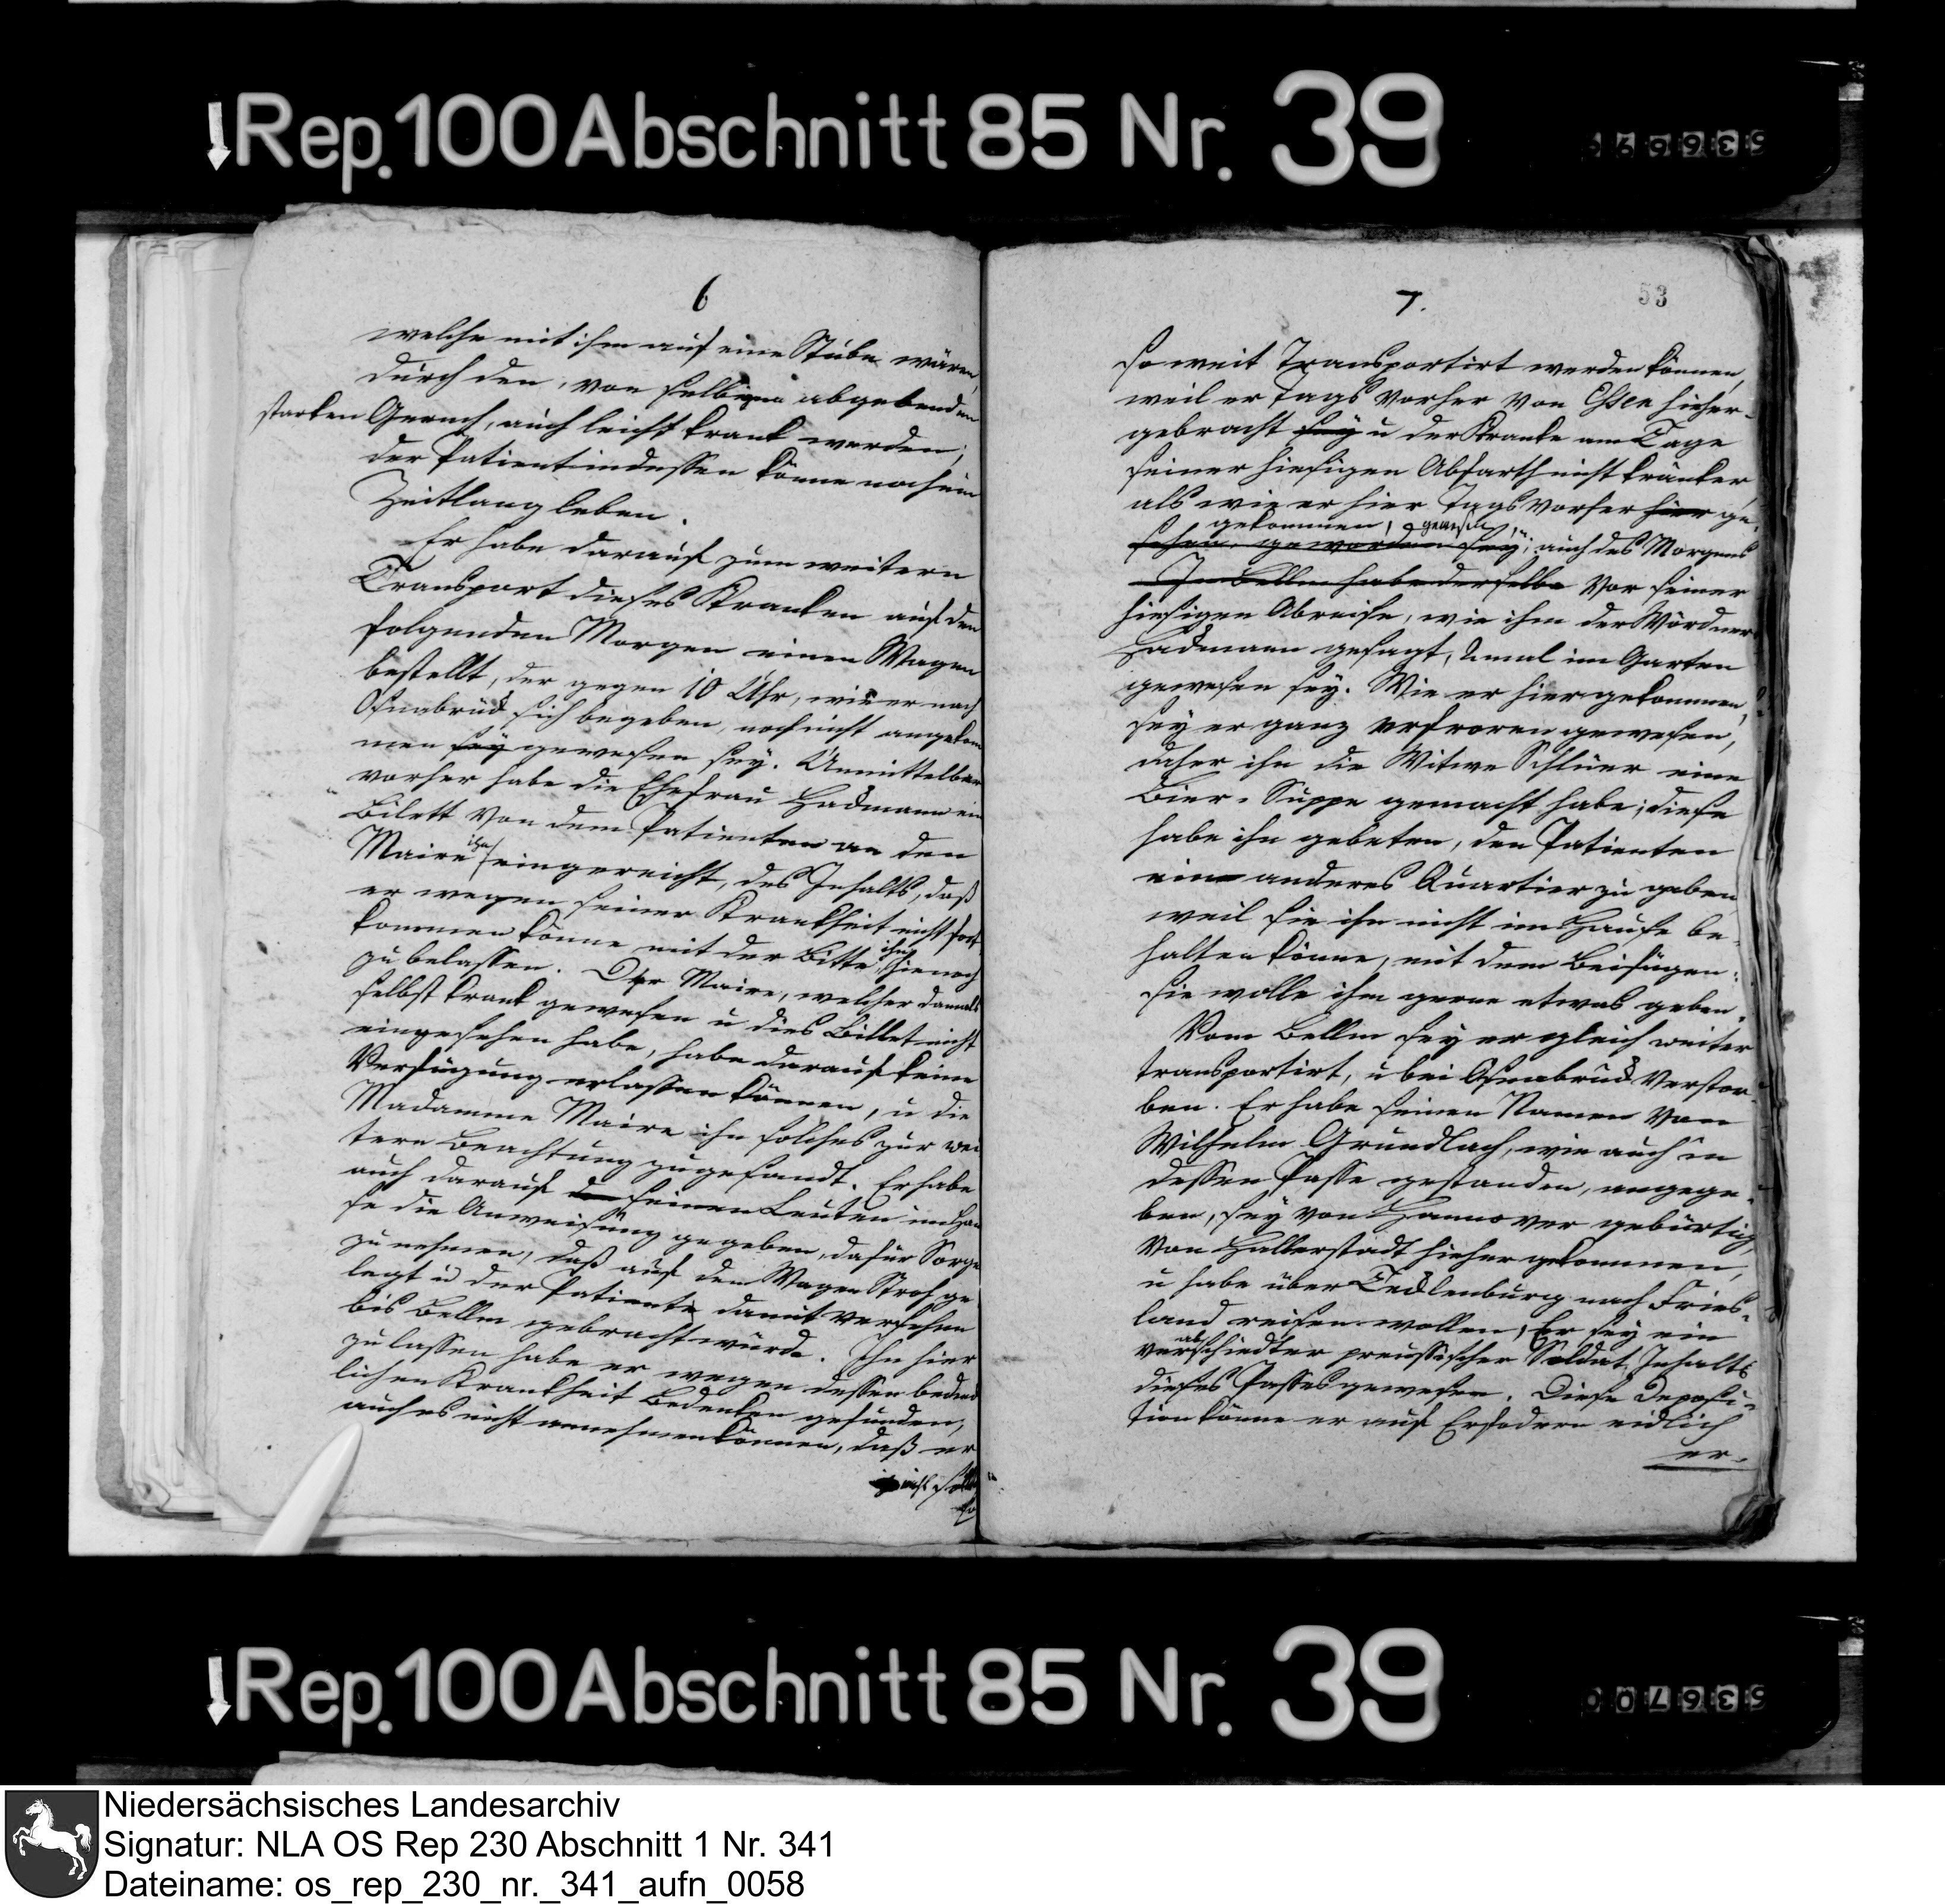 Rep. 100 Abschnitt 85 Nr. 39
6
welche mit ihm auf eine Stube wären,
durch den, von selbigem abgebenden
starken Geruch, auch leicht krank werden;
der Patient indessen könne noch ein
Zeitlang leben.
Er habe darauf zum weitern
Transport dieses Kranken auf den
folgenden Morgen einen Wagen
bestellt, der gegen 10 Uhr, wie er nach
Osnabrück sich begeben, noch nicht angekom
men sey gewesen sey. Unmittelbar
vorher habe die Ehefrau Hackmann ein
Bilett von dem Patienten an den
Maire ihm eingereicht, des Inhalts, daß
er wegen seiner Krankheit nicht fort
kommen könne mit der Bitte, ihn hie noch
zu belassen. Der Maire, welcher damals
selbst krank gewesen u dies Billet nicht
eingesehen habe, habe darauf keine
Verfügung erlassen können, u die
Madamme Maire ihn solches zur wei
tern Beachtung zugesandt. Er habe
auch darauf seinen Leuten im Hau
se die Anweisung gegeben, dafür Sorge
zu nehmen, daß auf dem Wagen Stroh ge
legt u der Patiente damit versehen
bis Bellm gebracht würde. Ihn hier
zu lassen habe er wegen dessen bedenk
lichen Krankheit Bedenken gefunden,
auch es nicht annehmen können, daß er
nicht solle
so
7.
53
so weit Transportirt werden können,
weil er Tags vorher von Essen hieher-
gebracht sey u der Kranke am Tage
seiner hiesigen Abfarth nicht kränker,
als wie er hier Tags vorher hier ge-
gekommen, gewesen
sehen, geworden sey; auch des Morgens
In Bellm habe derselbe vor seiner
hiesigen Abreise, wie ihm der Wördner
Hackmann gesagt, 2mal im Garten
gewesen sey. Wie er hier gekommen,
sey er ganz erfroren gewesen,
daher ihn die Witwe Schlüer eine
Bier-Suppe gemacht habe; diese
habe ihn gebeten, den Patienten
ein anderes Quartier zu geben,
weil sie ihn nicht im Hause be-
halten könne, mit dem Beifügen:
sie wolle ihm gerne etwas geben.
Von Bellm sey er gleich weiter
transportirt, u bei Osnabrück verstor-
ben. Er habe seinen Namen von
Wilhelm Grundlach, wie auch in
dessen Passe gestanden, angege-
ben, sey von Hannover gebürtig,
von Halberstadt hieher gekommen,
u habe über Tecklenburg nach Fries-
land reisen wollen; Er sey ein
verabschiedter preussischer Soldat, Inhalts
dieses Passes gewesen. Diese Deposi-
tion könne er auf Erfodern eidlich
er-
Rep. 100 Abschnitt 85 Nr. 39
Niedersächsisches Landesarchiv
Signatur: NLA OS Rep 230 Abschnitt 1 Nr. 341
Dateiname: os_rep_230_nr._341_aufn_0058